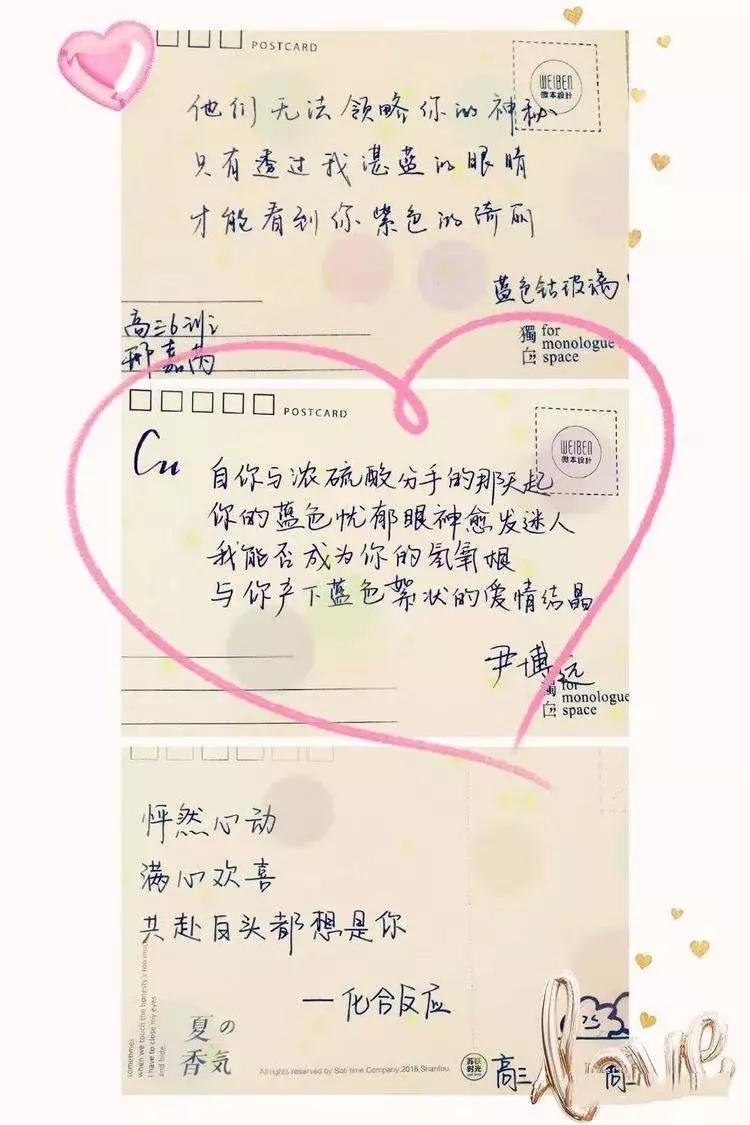 POSTCARD
WEIBEN
微本設計
他们无法领略你的神秘
只有透过我湛蓝的眼睛
才能看到你紫色的绮丽
蓝色钴玻璃
高三6班
邢嘉芮
獨白
for
monologue
space
POSTCARD
WEIBEN
微本設計
Cu
自你与浓硫酸分手的那天起
你的蓝色忧郁眼神愈发迷人
我能否成为你的氢氧根
与你产下蓝色絮状的爱情结晶
尹博远
獨白
for
monologue
space
怦然心动
满心欢喜
共赴白头都想是你
—化合反应
sometimes
when we touch the honesty's too much
I have to close my eyes
and hide.
夏の
香気
All rights reserved by Soti time Company,2016,Shantou.
苏铁
时光
高三
高二
love